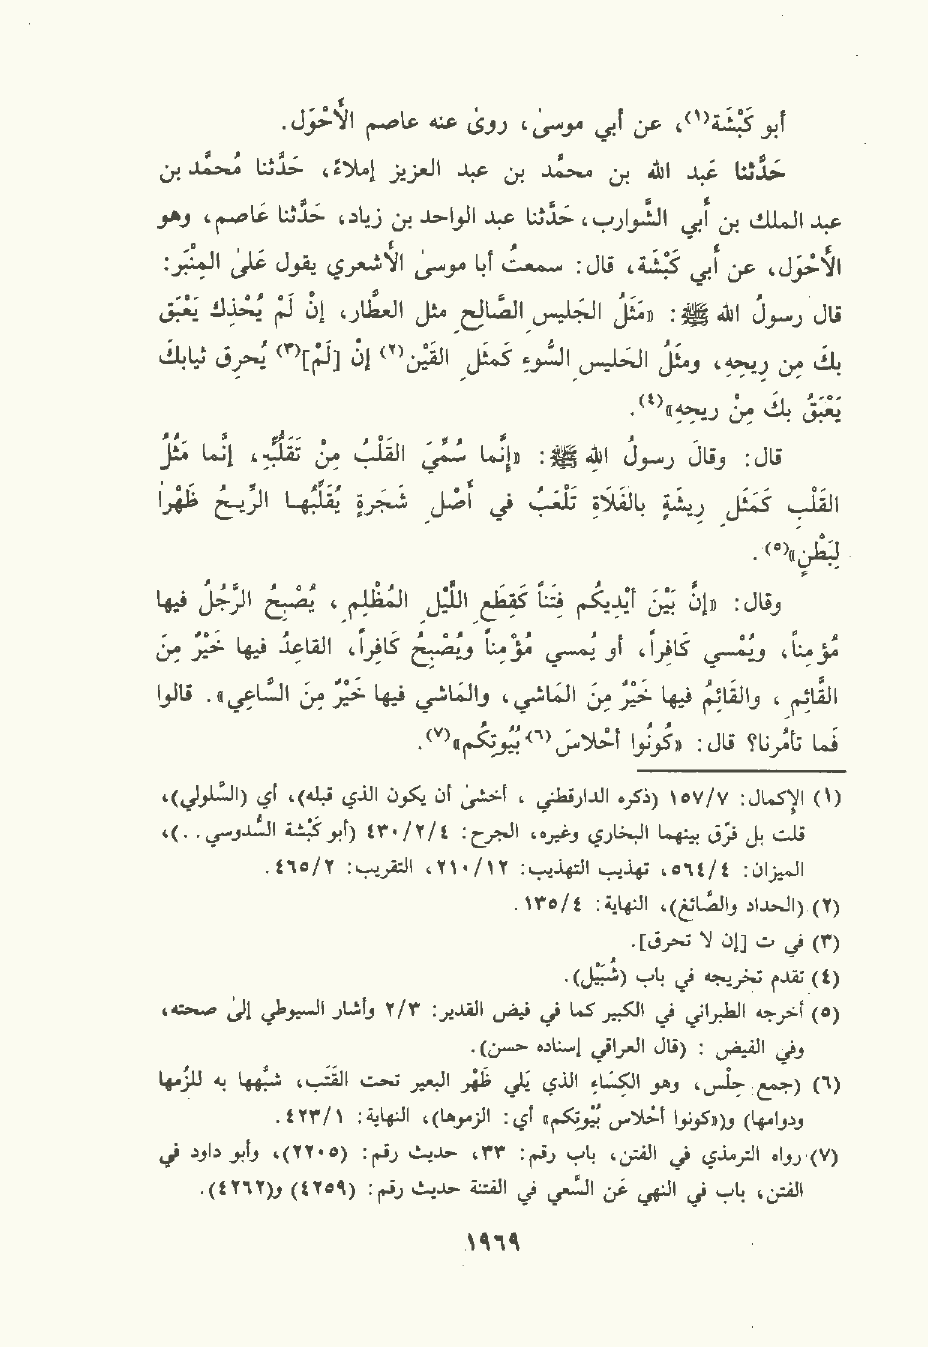 أبو كَبْشَة(١)، عن أبي موسىٰ، روىٰ عنه عاصم الأَحْوَل.
حَدَّثنا عَبد الله بن محمَّد بن عبد العزيز إملاءً، حَدَّثنا مُحمَّد بن
عبد الملك بن أَبي الشَّوارب، حَدَّثنا عبد الواحد بن زياد، حَدَّثنا عَاصم، وهو
الأَحْوَل، عن أَبي كَبْشَة، قال: سمعتُ أبا موسىٰ الأَشعري يقول عَلىٰ المِنْبَر:
قال رسولُ الله ﷺ: «مَثَلُ الجَليسِ الصَّالحِ مثل العطَّار، إنْ لَمْ يُحْذِكَ يَعْبَق
بكَ مِن رِيحِهِ، ومثَلُ الجَليسِ السُّوءِ كمثَلِ القَيْنِ(٢) إنْ [لَمْ](٣) يُحرِق ثيابكَ
يَعْبَقُ بكَ مِنْ ريحِهِ»(٤).
قال: وقالَ رسولُ اللهِ ﷺ: «إنَّما سُمِّيَ القَلْبُ مِنْ تَقَلُّبِّهِ، إنَّما مَثَلُ
القَلْبِ كَمَثَلِ رِيشَةٍ بالفَلَاةِ تَلْعَبُ في أَصْلِ شَجَرةٍ يُقَلِّبُهـا الرِّيـحُ ظَهْراً
لِبَطْنٍ»(٥).
وقال: «إنَّ بَيْنَ أيْدِيكُم فِتَناً كَقِطَعِ اللَّيْلِ المُظْلِمِ، يُصْبِحُ الرَّجُلُ فيها
مُؤمِناً، ويُمْسي كَافِراً، أو يُمسي مُؤْمِناً ويُصْبِحُ كَافِراً، القاعِدُ فيها خَيْرٌ مِنَ
القَّائِمِ، والقَائِمُ فيها خَيْرٌ مِنَ المَاشي، والمَاشي فيها خَيْرٌ مِنَ السَّاعِي». قالوا
فَما تأمُرنا؟ قال: «كُونُوا أحْلاسَ(٦) بُيُوتِكُم»(٧).
(١) الإكمال: ١٥٧/٧ (ذكره الدارقطني، أخشىٰ أن يكون الذي قبله)، أي (السَّلولي)،
قلت بل فرّق بينهما البخاري وغيره، الجرح: ٤٣٠/٢/٤ (أبو كَبْشة السَّدوسي..)،
الميزان: ٥٦٤/٤، تهذيب التهذيب: ٢١٠/١٢، التقريب: ٤٦٥/٢.
(٢) (الحداد والصَّائغ)، النهاية: ١٣٥/٤.
(٣) في ت [إن لا تحرق].
(٤) تقدم تخريجه في باب (شُبَيْل).
(٥) أخرجه الطبراني في الكبير كما في فيض القدير: ٢/٣ وأشار السيوطي إلىٰ صحته،
وفي الفيض: (قال العراقي إسناده حسن).
(٦) (جمع حِلْس، وهو الكِسَاء الذي يَلي ظَهْر البعير تحت القَتَب، شبَّهها به للزُمها
ودوامها) و(«كونوا أحْلاس بُيوتِكم» أي: الزموها)، النهاية: ٤٢٣/١.
(٧) رواه الترمذي في الفتن، باب رقم: ٣٣، حديث رقم: (٢٢٠٥)، وأبو داود في
الفتن، باب في النهي عَن السَّعي في الفتنة حديث رقم: (٤٢٥٩) و(٤٢٦٢).
١٩٦٩